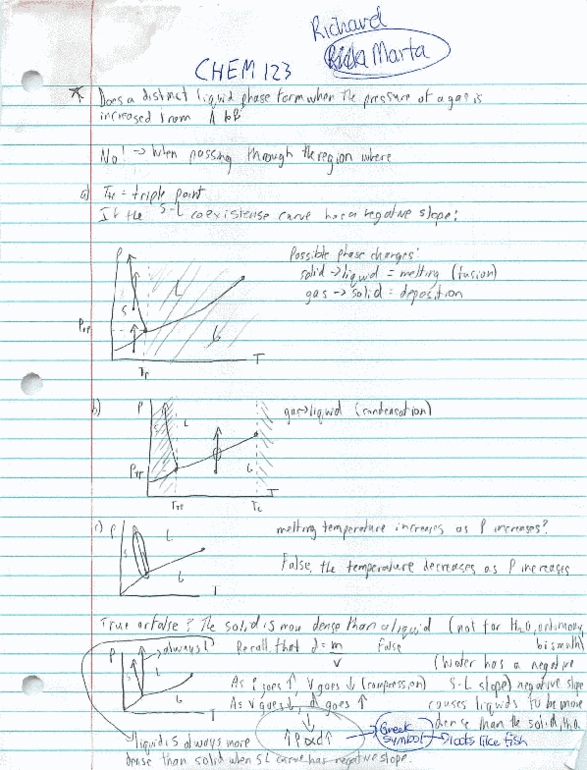 Richard
Rick Marta
CHEM 123
* Does a distinct liquid phase form when the pressure of a gas is
increased from A to B
No! → when passing through the region where
a) Ttr = triple point
If the S-L coexistense curve has a negative slope:
Possible phase changes:
solid → liquid = melting (fusion)
gas → solid = deposition
P
S
L
G
T
b)
gas → liquid (condensation)
P
S
L
G
T
c)
melting temperature increases as P increases?
False, the temperature decreases as P increases
P
S
L
G
T
True or false? The solid is more dense than a liquid (not for H2O, antimony,
bismuth)
always!
Recall that d = m
V
False
(Water has a negative
S-L slope) negative slope
causes liquids to be more
dense than the solid
As P goes ↑, V goes ↓ (compression)
As V goes ↓, d goes ↑
↑P α d↑
Greek
symbol
→ looks like fish
P
S
L
G
T
liquid is always more
dense than solid when SL curve has negative slope.